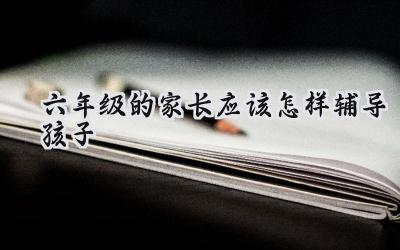 六年级的家长应该怎样辅导
孩子